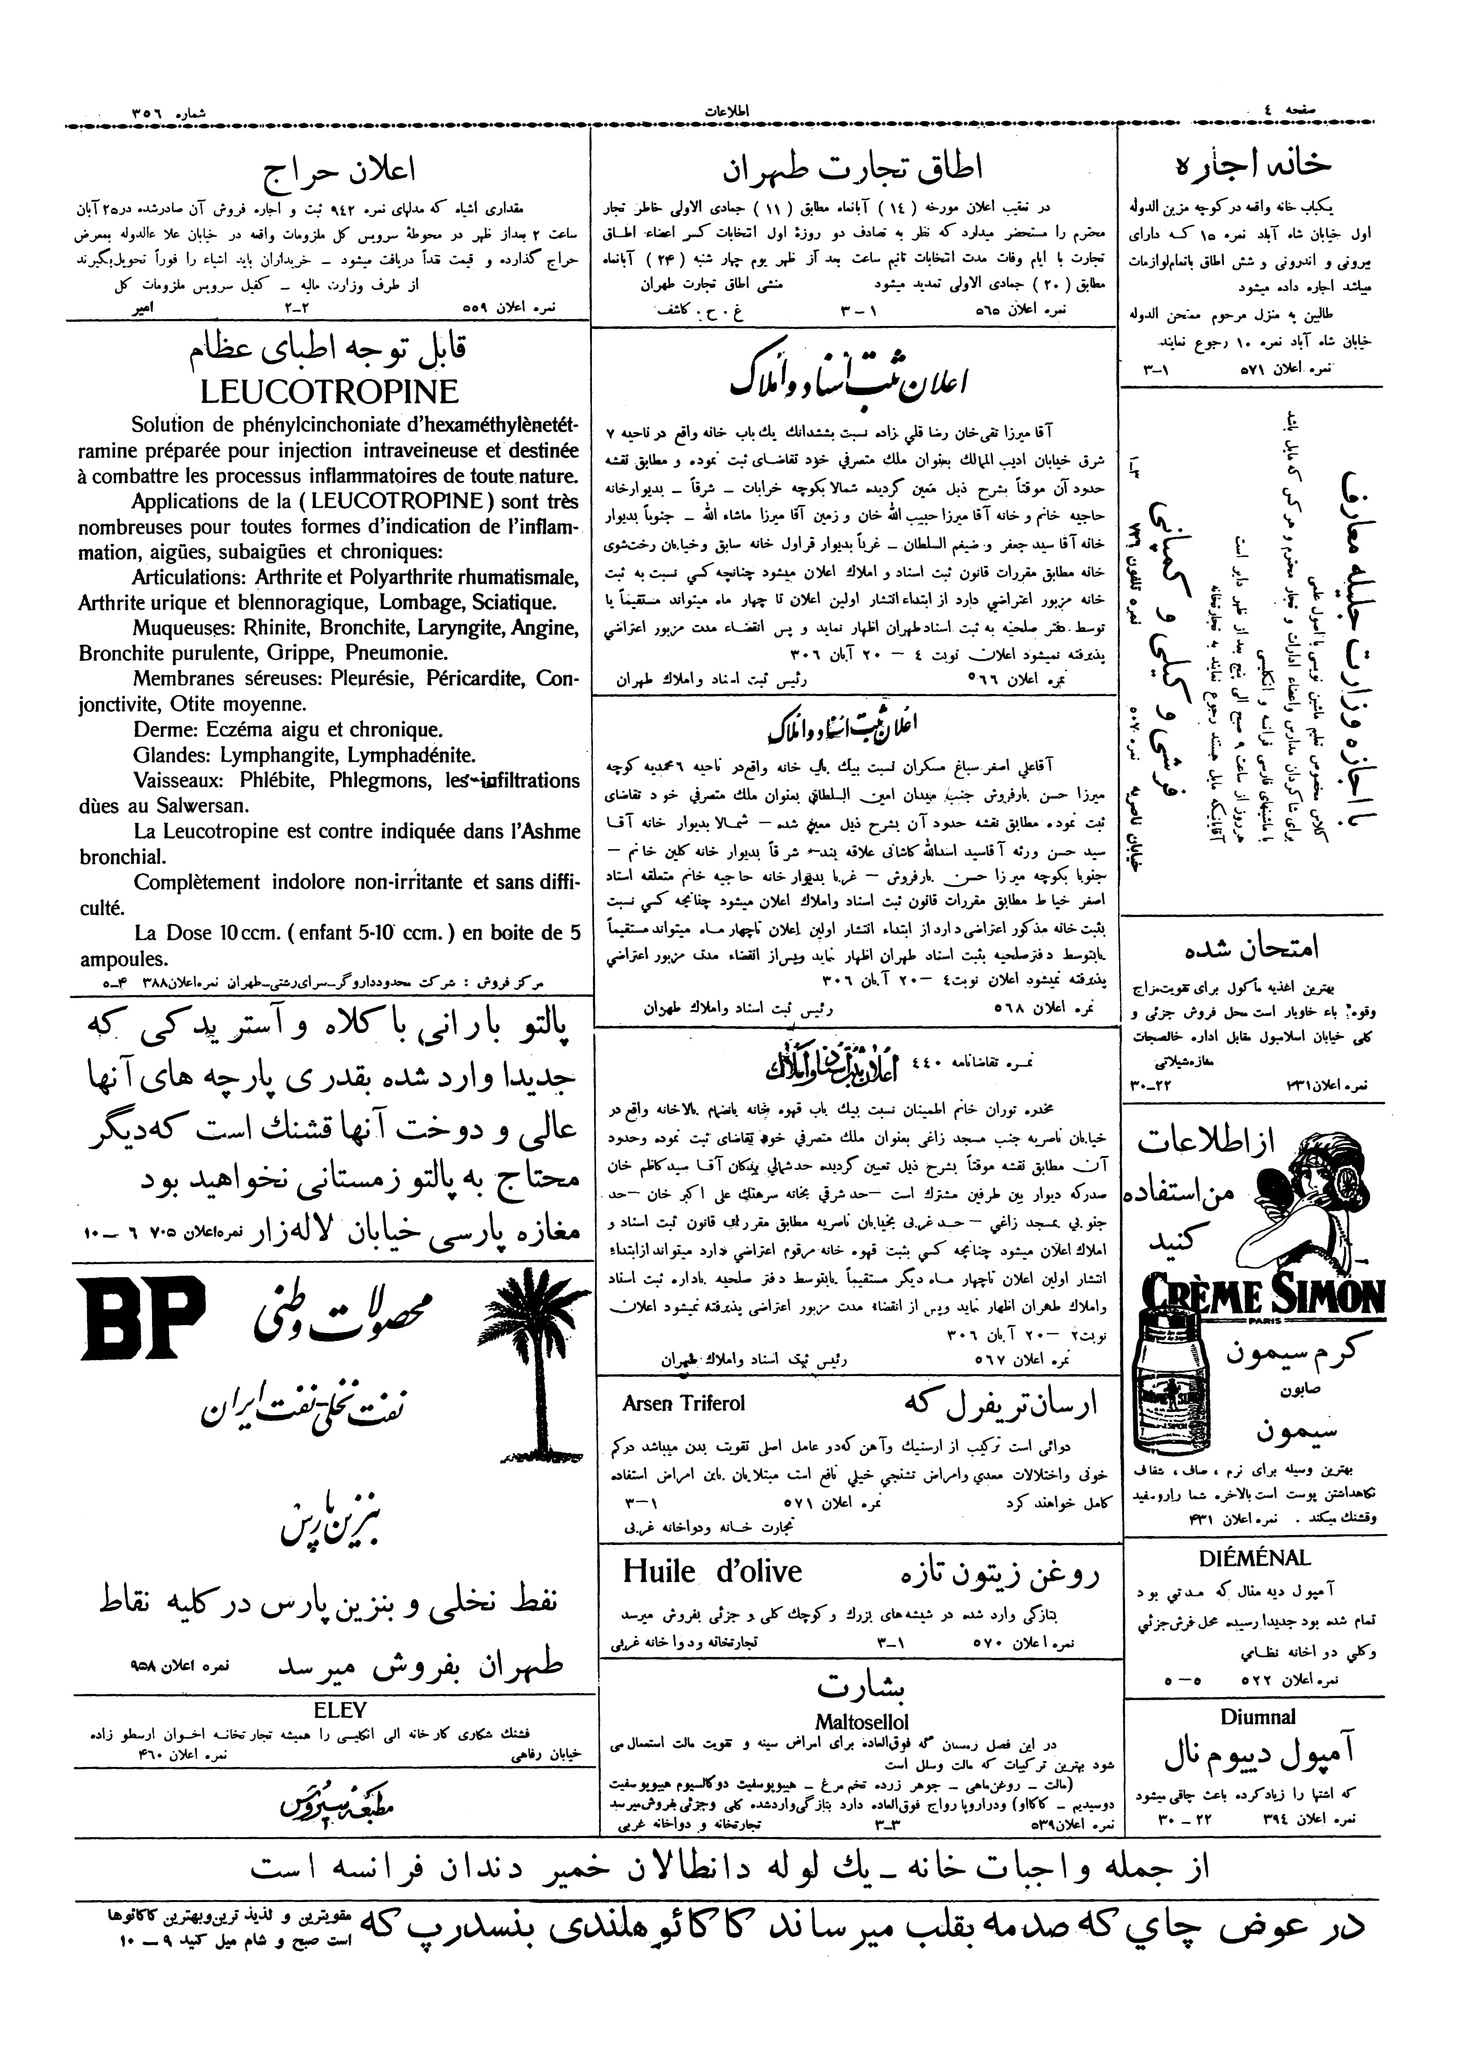 صفحه ٤
اطلاعات
شماره ٣٥٦
خانه اجاره
یکباب خانه واقعه در کوچه مزین الدوله
اول خیابان شاه آباد نمره ۱۵ که دارای
بیرونی و اندرونی و شش اطاق باتمام لوازمات
میباشد اجاره داده میشود
طالبین به منزل مرحوم ممتحن الدوله
خیابان شاه آباد نمره ۱۰ رجوع نمایند
نمره اعلان ۵۷۱ ۱–۳
با اجازه وزارت جلیله معارف
کلاس مخصوص تعلیم ماشین نویسی با اصول علمی
برای شاگردان مدارس واعضاء ادارات و تجار محترم و هر کس که مایل باشد
با ماشینهای فارسی فرانسه و انگلیسی
هرروز از ساعت ۹ صبح الی پنج بعد از ظهر دایر است
آقایانیکه مایل هستند رجوع نمایند به تجارتخانه
فرشی و کیلی و کمپانی
خیابان ناصریه نمره ۵۰۷ نمره تلفون ۷۳۶ ۳–۱
امتحان شده
بهترین اغذیه مأکول برای تقویت مزاج
وقوه باء خاویار است محل فروش جزئی و
کلی خیابان اسلامبول مقابل اداره خالصجات
مغازه شیلاتی
نمره اعلان ۲۳۱ ۲۲–۳۰
از اطلاعات
من استفاده
کنید
CRÈME SIMON
PARIS
کرم سیمون
صابون
سیمون
بهترین وسیله برای نرم ، صاف ، شفاف
نگاهداشتن پوست است بالاخره شما را روسفید
وقشنك میکند . نمره اعلان ۴۳۱
DIÉMÉNAL
آمپول دیه منال که مدتی بود
تمام شده بود جدیداً رسیده محل فرش جزئی
وکلي دواخانه نظامي
نمره اعلان ۵۲۲ ۵–۵
Diumnal
آمپول دییوم نال
که اشتها را زیاد کرده باعث چاقی میشود
نمره اعلان ۳۹٤ ۲۲ – ۳۰
اطاق تجارت طهران
در تعقیب اعلان مورخه ( ۱٤ ) آبانماه مطابق ( ۱۱ ) جمادی الاولی خاطر تجار
محترم را مستحضر میدارد که نظر به تصادف دو روزهٔ اول انتخابات کسر اعضاء اطاق
تجارت با ایام وفات مدت انتخابات تانیم ساعت بعد از ظهر یوم چهار شنبه ( ۲۴ ) آبانماه
مطابق ( ۲۰ ) جمادی الاولی تمدید میشود منشی اطاق تجارت طهران
نمره اعلان ۵٦۵ ۱ – ۳ غ . ح . کاشف
اعلان ثبت أسناد و أملاک
آقا میرزا تقی خان رضا قلی زاده نسبت بششدانك یك باب خانه واقع در ناحیه ۷
شرق خیابان ادیب الممالك بعنوان ملك متصرفي خود تقاضای ثبت نموده و مطابق نقشه
حدود آن موقتاً بشرح ذیل معین گردیده شمالا بکوچه خرابات – شرقاً – بدیوارخانه
حاجیه خانم و خانه آقا میرزا حبیب الله خان و زمین آقا میرزا ماشاء الله – جنوباً بدیوار
خانه آقا سید جعفر و ضیغم السلطان – غرباً بدیوار قراول خانه سابق و خیابان رخت شوی
خانه مطابق مقررات قانون ثبت اسناد و املاك اعلان میشود چنانچه کسي نسبت به ثبت
خانه مزبور اعتراضي دارد از ابتداء انتشار اولین اعلان تا چهار ماه میتواند مستقیماً یا
توسط دفتر صلحیه به ثبت اسناد طهران اظهار نماید و پس انقضاء مدت مزبور اعتراضي
پذیرفته نمیشود اعلان نوبت ٤ – ۲۰ آبان ۳۰٦
نمره اعلان ۵٦٦ رئیس ثبت اسناد و املاك طهران
اعلان ثبت اسناد و املاک
آقاعلي اصغر سباغ مسکران نسبت بیك باب خانه واقع در ناحیه ٦ محمدیه کوچه
میرزا حسن بارفروش جنب میدان امین السلطانی بعنوان ملك متصرفي خود تقاضای
ثبت نموده مطابق نقشه حدود آن بشرح ذیل معین شده – شمالا بدیوار خانه آقا
سید حسن ورثه آقاسید اسدالله کاشانی علاقه بند – شرقاً بدیوار خانه کلین خانم –
جنوبا بکوچه میرزا حسن بارفروش – غربا بدیوار خانه حاجیه خانم متعلقه استاد
اصغر خیاط مطابق مقررات قانون ثبت اسناد واملاك اعلان میشود چنانچه کسي نسبت
بثبت خانه مذکور اعتراضي دارد از ابتداء انتشار اولین اعلان تاچهار ماه میتواند مستقیماً
یابتوسط دفتر صلحیه بثبت اسناد طهران اظهار نماید وپس از انقضاء مدت مزبور اعتراضي
پذیرفته نمیشود اعلان نوبت ٤ – ۲۰ آبان ۳۰٦
نمره اعلان ۵٦۸ رئیس ثبت اسناد واملاك طهران
نمره تقاضانامه ٤٤۰ اعلان ثبت اسناد و املاک
مخدره توران خانم اطمینان نسبت بیك باب قهوه خانه بانضمام بالاخانه واقع در
خیابان ناصریه جنب مسجد زاغي بعنوان ملك متصرفي خود تقاضای ثبت نموده وحدود
آن مطابق نقشه موقتاً بشرح ذیل تعیین گردیده حد شمالي بدکان آقا سید کاظم خان
صدر که دیوار بین طرفین مشترك است – حد شرقي بخانه سرهنك علی اکبر خان – حد
جنوبي بمسجد زاغي – حد غربی بخیابان ناصریه مطابق مقررات قانون ثبت اسناد و
املاك اعلان میشود چنانچه کسي بثبت قهوه خانه مرقوم اعتراضی دارد میتواند از ابتداء
انتشار اولین اعلان تاچهار ماه دیگر مستقیماً یابتوسط دفتر صلحیه باداره ثبت اسناد
واملاك طهران اظهار نماید وپس از انقضاء مدت مزبور اعتراضي پذیرفته نمیشود اعلان
نوبت ۲ – ۲۰ آبان ۳۰٦
نمره اعلان ۵٦۷ رئیس ثبت اسناد واملاك طهران
ارسان تریفرل که Arsen Triferol
دوائی است ترکیب از ارسنیك وآهن که دو عامل اصلی تقویت بدن میباشد در کم
خونی واختلالات معدي وامراض تشنجي خیلي نافع است مبتلایان باین امراض استفاده
کامل خواهند کرد نمره اعلان ۵۷۱ ۱–۳
تجارت خانه ودواخانه غربی
روغن زیتون تازه Huile d'olive
بتازگی وارد شده در شیشه های بزرك و کوچك کلی و جزئی بفروش میرسد
نمره اعلان ۵۷۰ ۱–۳ تجارتخانه ودواخانه غربی
بشارت
Maltosellol
در این فصل زمستان که فوق العاده برای امراض سینه و تقویت مالت استعمال می
شود بهترین ترکیبات که مالت وسلل است
(مالت – روغن ماهی – جوهر زرده تخم مرغ – هیپوپوسفیت دوکالسیوم هیپوپوسفیت
دوسیدیم – کاکااو) ودراروپا رواج فوق العاده دارد بتازگی وارد شده کلی وجزئی بفروش میرسد
نمره اعلان ۵۳۹ ۳–۳ تجارتخانه و دواخانه غربی
اعلان حراج
مقداری اشیاء که مدلهای نمره ۹۴۲ ثبت و اجاره فروش آن صادر شده در ۲۵ آبان
ساعت ۲ بعد از ظهر در محوطهٔ سرویس کل ملزومات واقعه در خیابان علاءالدوله بمعرض
حراج گذارده و قیمت نقداً دریافت میشود – خریداران باید اشیاء را فوراً تحویل بگیرند
از طرف وزارت مالیه – کفیل سرویس ملزومات کل
نمره اعلان ۵۵۹ ۲–۲ امیر
قابل توجه اطبای عظام
LEUCOTROPINE
Solution de phénylcinchoniate d'hexaméthylènetét-
ramine préparée pour injection intraveineuse et destinée
à combattre les processus inflammatoires de toute nature.
Applications de la ( LEUCOTROPINE ) sont très
nombreuses pour toutes formes d'indication de l'inflam-
mation, aigües, subaigües et chroniques:
Articulations: Arthrite et Polyarthrite rhumatismale,
Arthrite urique et blennoragique, Lombage, Sciatique.
Muqueuses: Rhinite, Bronchite, Laryngite, Angine,
Bronchite purulente, Grippe, Pneumonie.
Membranes séreuses: Pleurésie, Péricardite, Con-
jonctivite, Otite moyenne.
Derme: Eczéma aigu et chronique.
Glandes: Lymphangite, Lymphadénite.
Vaisseaux: Phlébite, Phlegmons, les infiltrations
dùes au Salwersan.
La Leucotropine est contre indiquée dans l'Ashme
bronchial.
Complètement indolore non-irritante et sans diffi-
culté.
La Dose 10 ccm. ( enfant 5-10 ccm. ) en boite de 5
ampoules.
مرکز فروش : شرکت محدود داروگر – سرای رشتی – طهران نمره اعلان ۳۸۸ ۴–۵
پالتو بارانی با کلاه و آستر یدکی که
جدیدا وارد شده بقدری پارچه های آنها
عالی و دوخت آنها قشنك است که دیگر
محتاج به پالتو زمستانی نخواهید بود
مغازه پارسی خیابان لاله زار نمره اعلان ۷۰۵ ٦ – ۱۰
BP
محصولات وطنی
نفت نخلی – نفت ایران
بنزین پارس
نفط نخلی و بنزین پارس در کلیه نقاط
طهران بفروش میرسد نمره اعلان ۹۵۸
ELEY
فشنك شکاری کارخانه الی انگلیسی را همیشه تجارتخانه اخوان ارسطو زاده
خیابان رفاهی نمره اعلان ۴٦۰
مطبعه سیروس
از جمله واجبات خانه – یك لوله دانطالان خمیر دندان فرانسه است
در عوض چاي که صدمه بقلب میرساند کاکائو هلندی بنسدرپ که مقویترین و لذیذ ترین و بهترین کاکائوها
است صبح و شام میل کنید ۹ – ۱۰